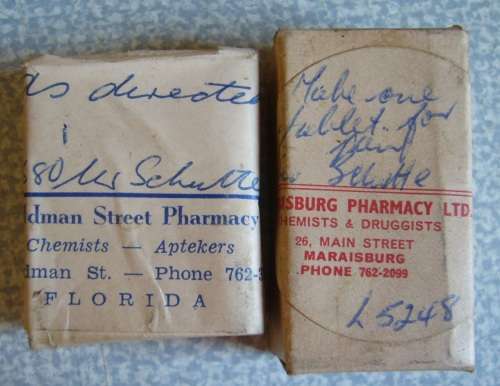 as directed
80 Mr Schutte
dman Street Pharmacy
Chemists — Aptekers
dman St. — Phone 762-
FLORIDA
Take one
tablet for
pain
Schutte
ISBURG PHARMACY LTD.
HEMISTS & DRUGGISTS
26, MAIN STREET
MARAISBURG
PHONE 762-2099
L5248